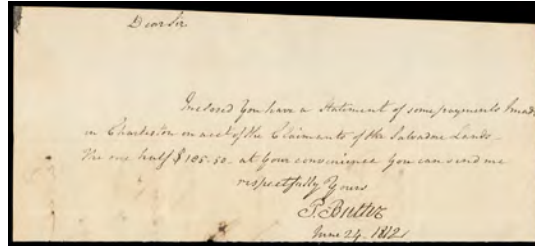 Dear Sir
Inclosed You have a Statement of some payments I made
in Charleston on acct of the Claimants of the Salvador Lands
the one half $185.50 - at Your convenience You can send me
respectfully Yours
P. Butler
June 24 - 1812